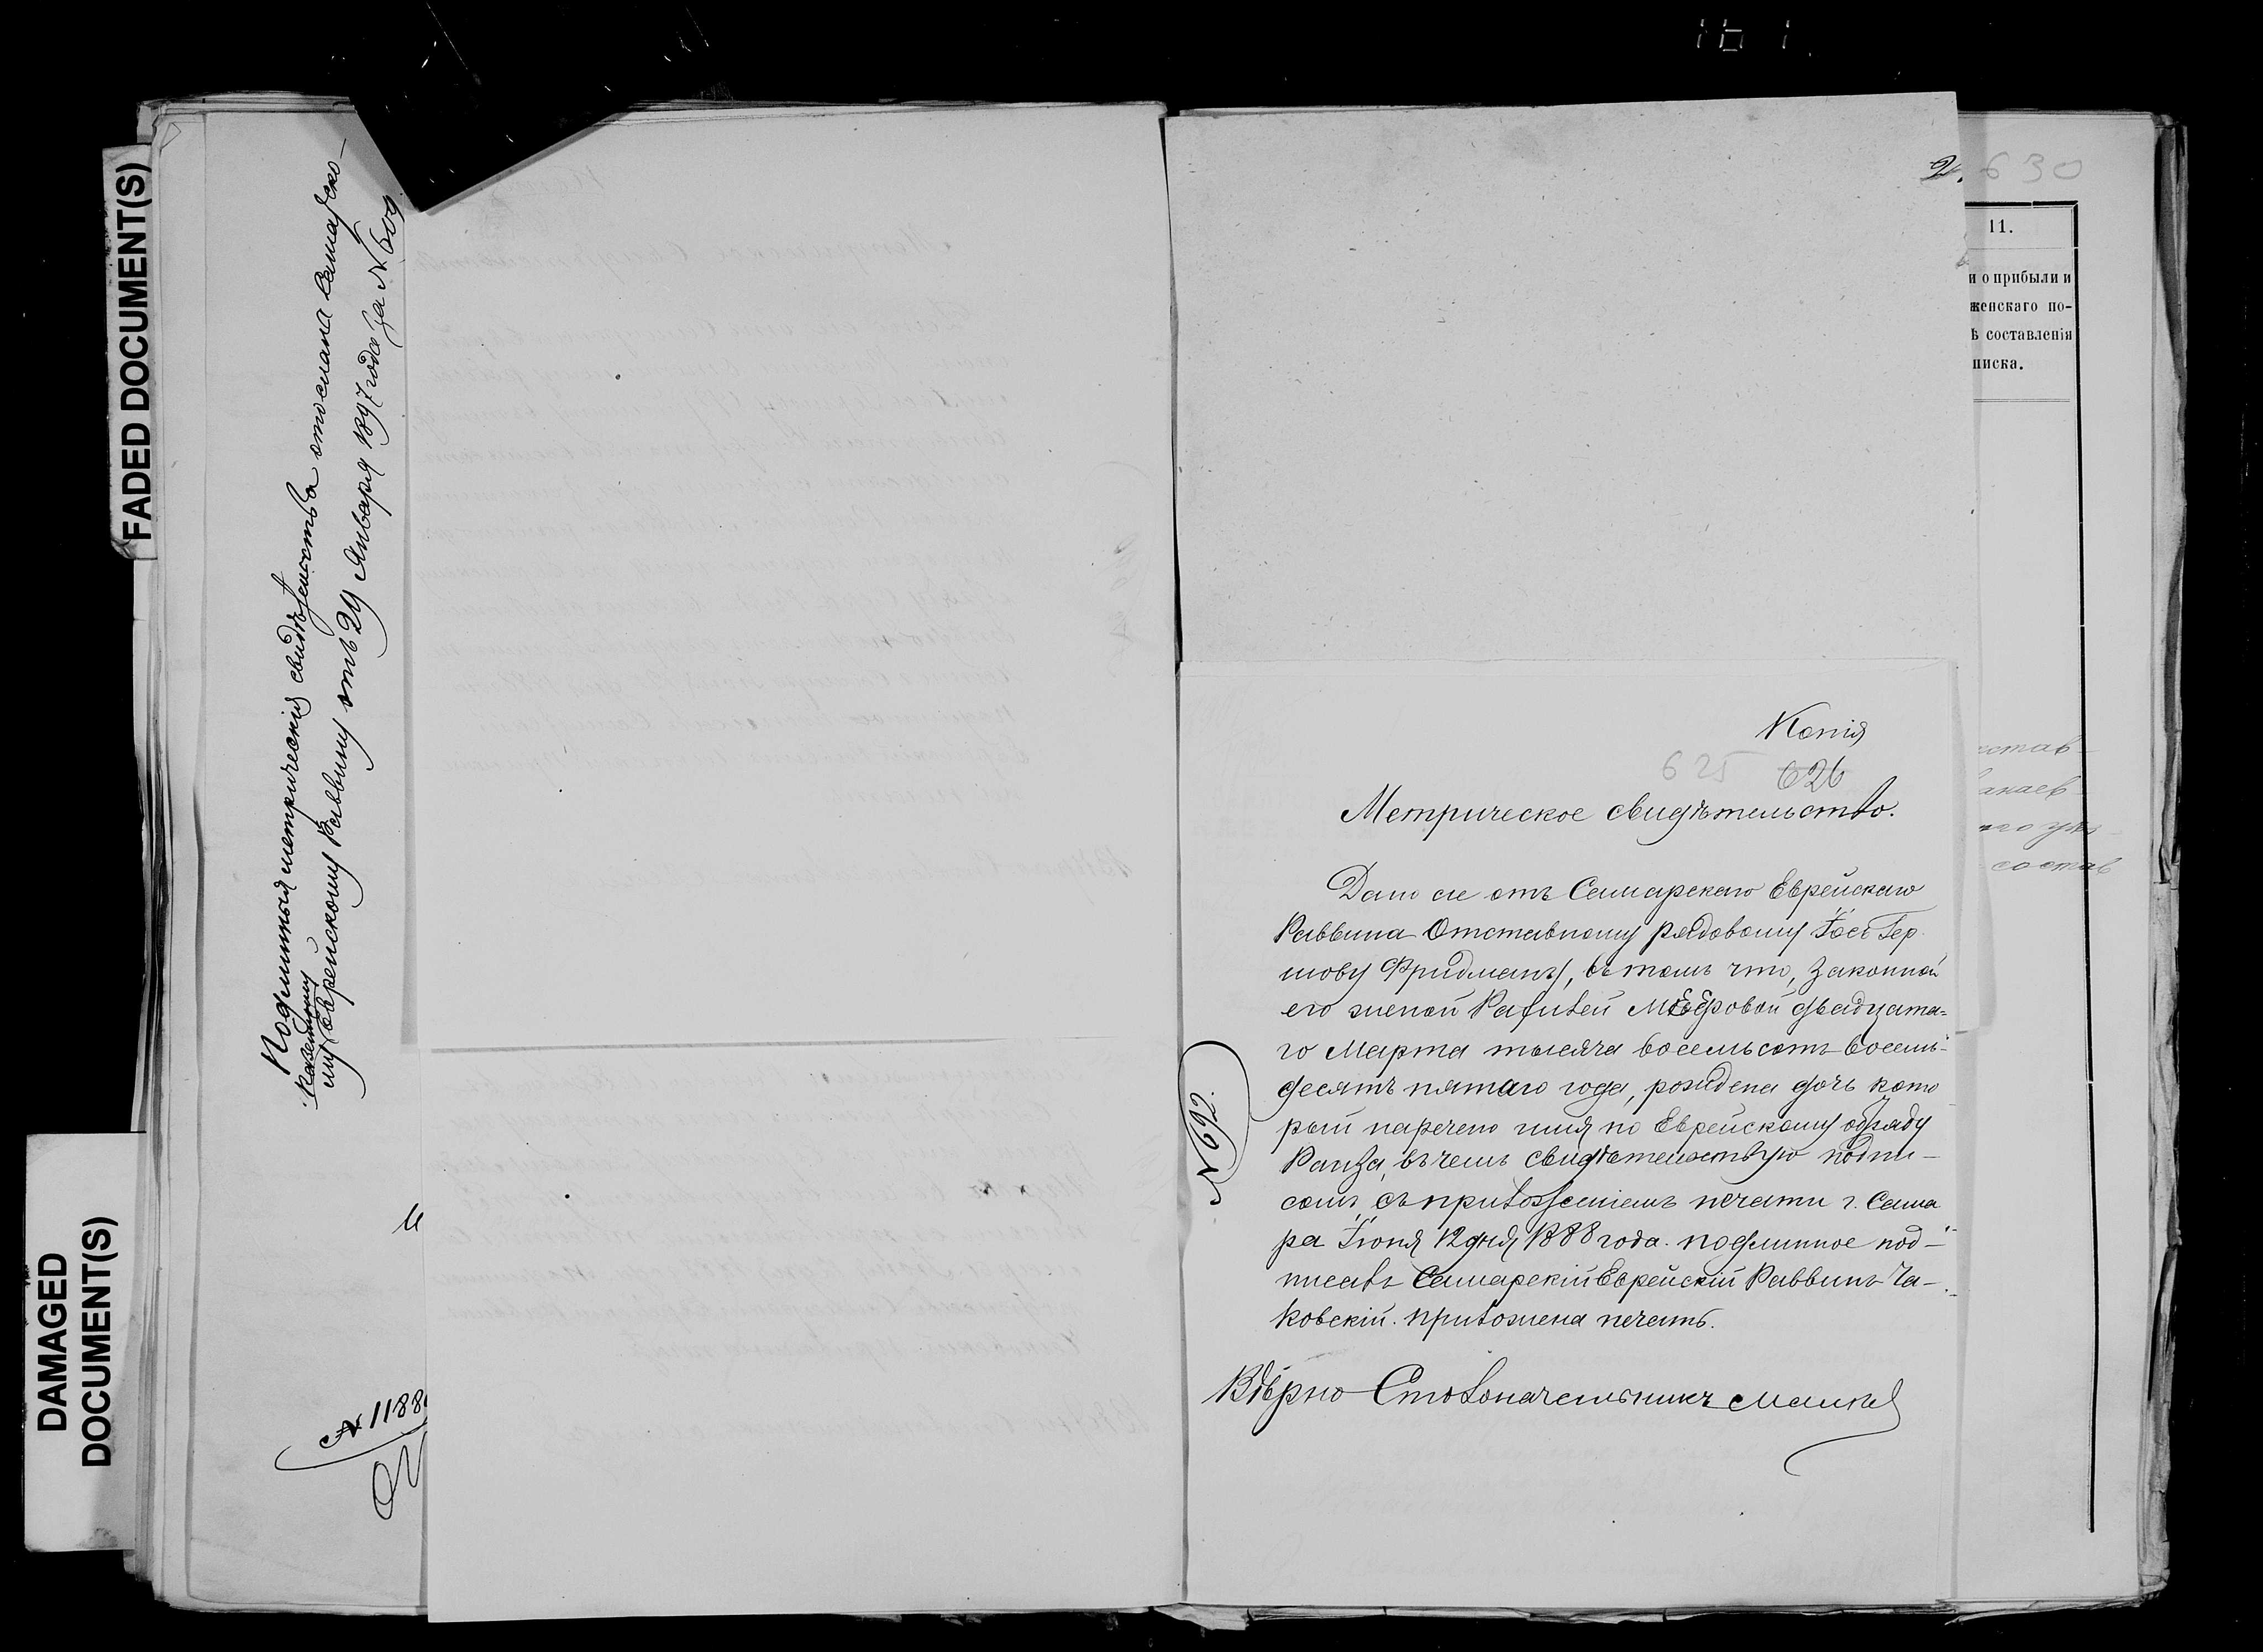 161.
FADED DOCUMENT(S)
DAMAGED
DOCUMENT(S)
Подлинныя метрическія свидѣтельства отослана Самарско-
Казенному
му Еврейскому Раввину отъ 29 Января 1897 года за № 609
И
№ 1188
2. 630
11.
и о прибыли и
женскаго по-
ѣ составленія
писка.
Копія
625 626
Метрическое свидѣтельство.
Дано сіе отъ Самарскаго Еврейскаго
Раввина Отставному рядовому Іосе Гер
шову Фридману, въ томъ что, законной
его женой Рахилей Мееровой двадцата-
го Марта тысяча восемьсотъ восемь-
десятъ пятаго года, рождена дочь кото
рый наречено имя по Еврейскому обряду
Раиза, въ чемъ свидѣтельствую подпи-
сомъ съ приложеніемъ печати г. Сама
ра Іюня 12 дня 1888 года. подлинное под-
писалъ Самарскій Еврейскій Раввинъ Ча-
ковскій. приложена печать.
№ 692.
Вѣрно Столоначальникъ
став
анаев
го уѣз
состав